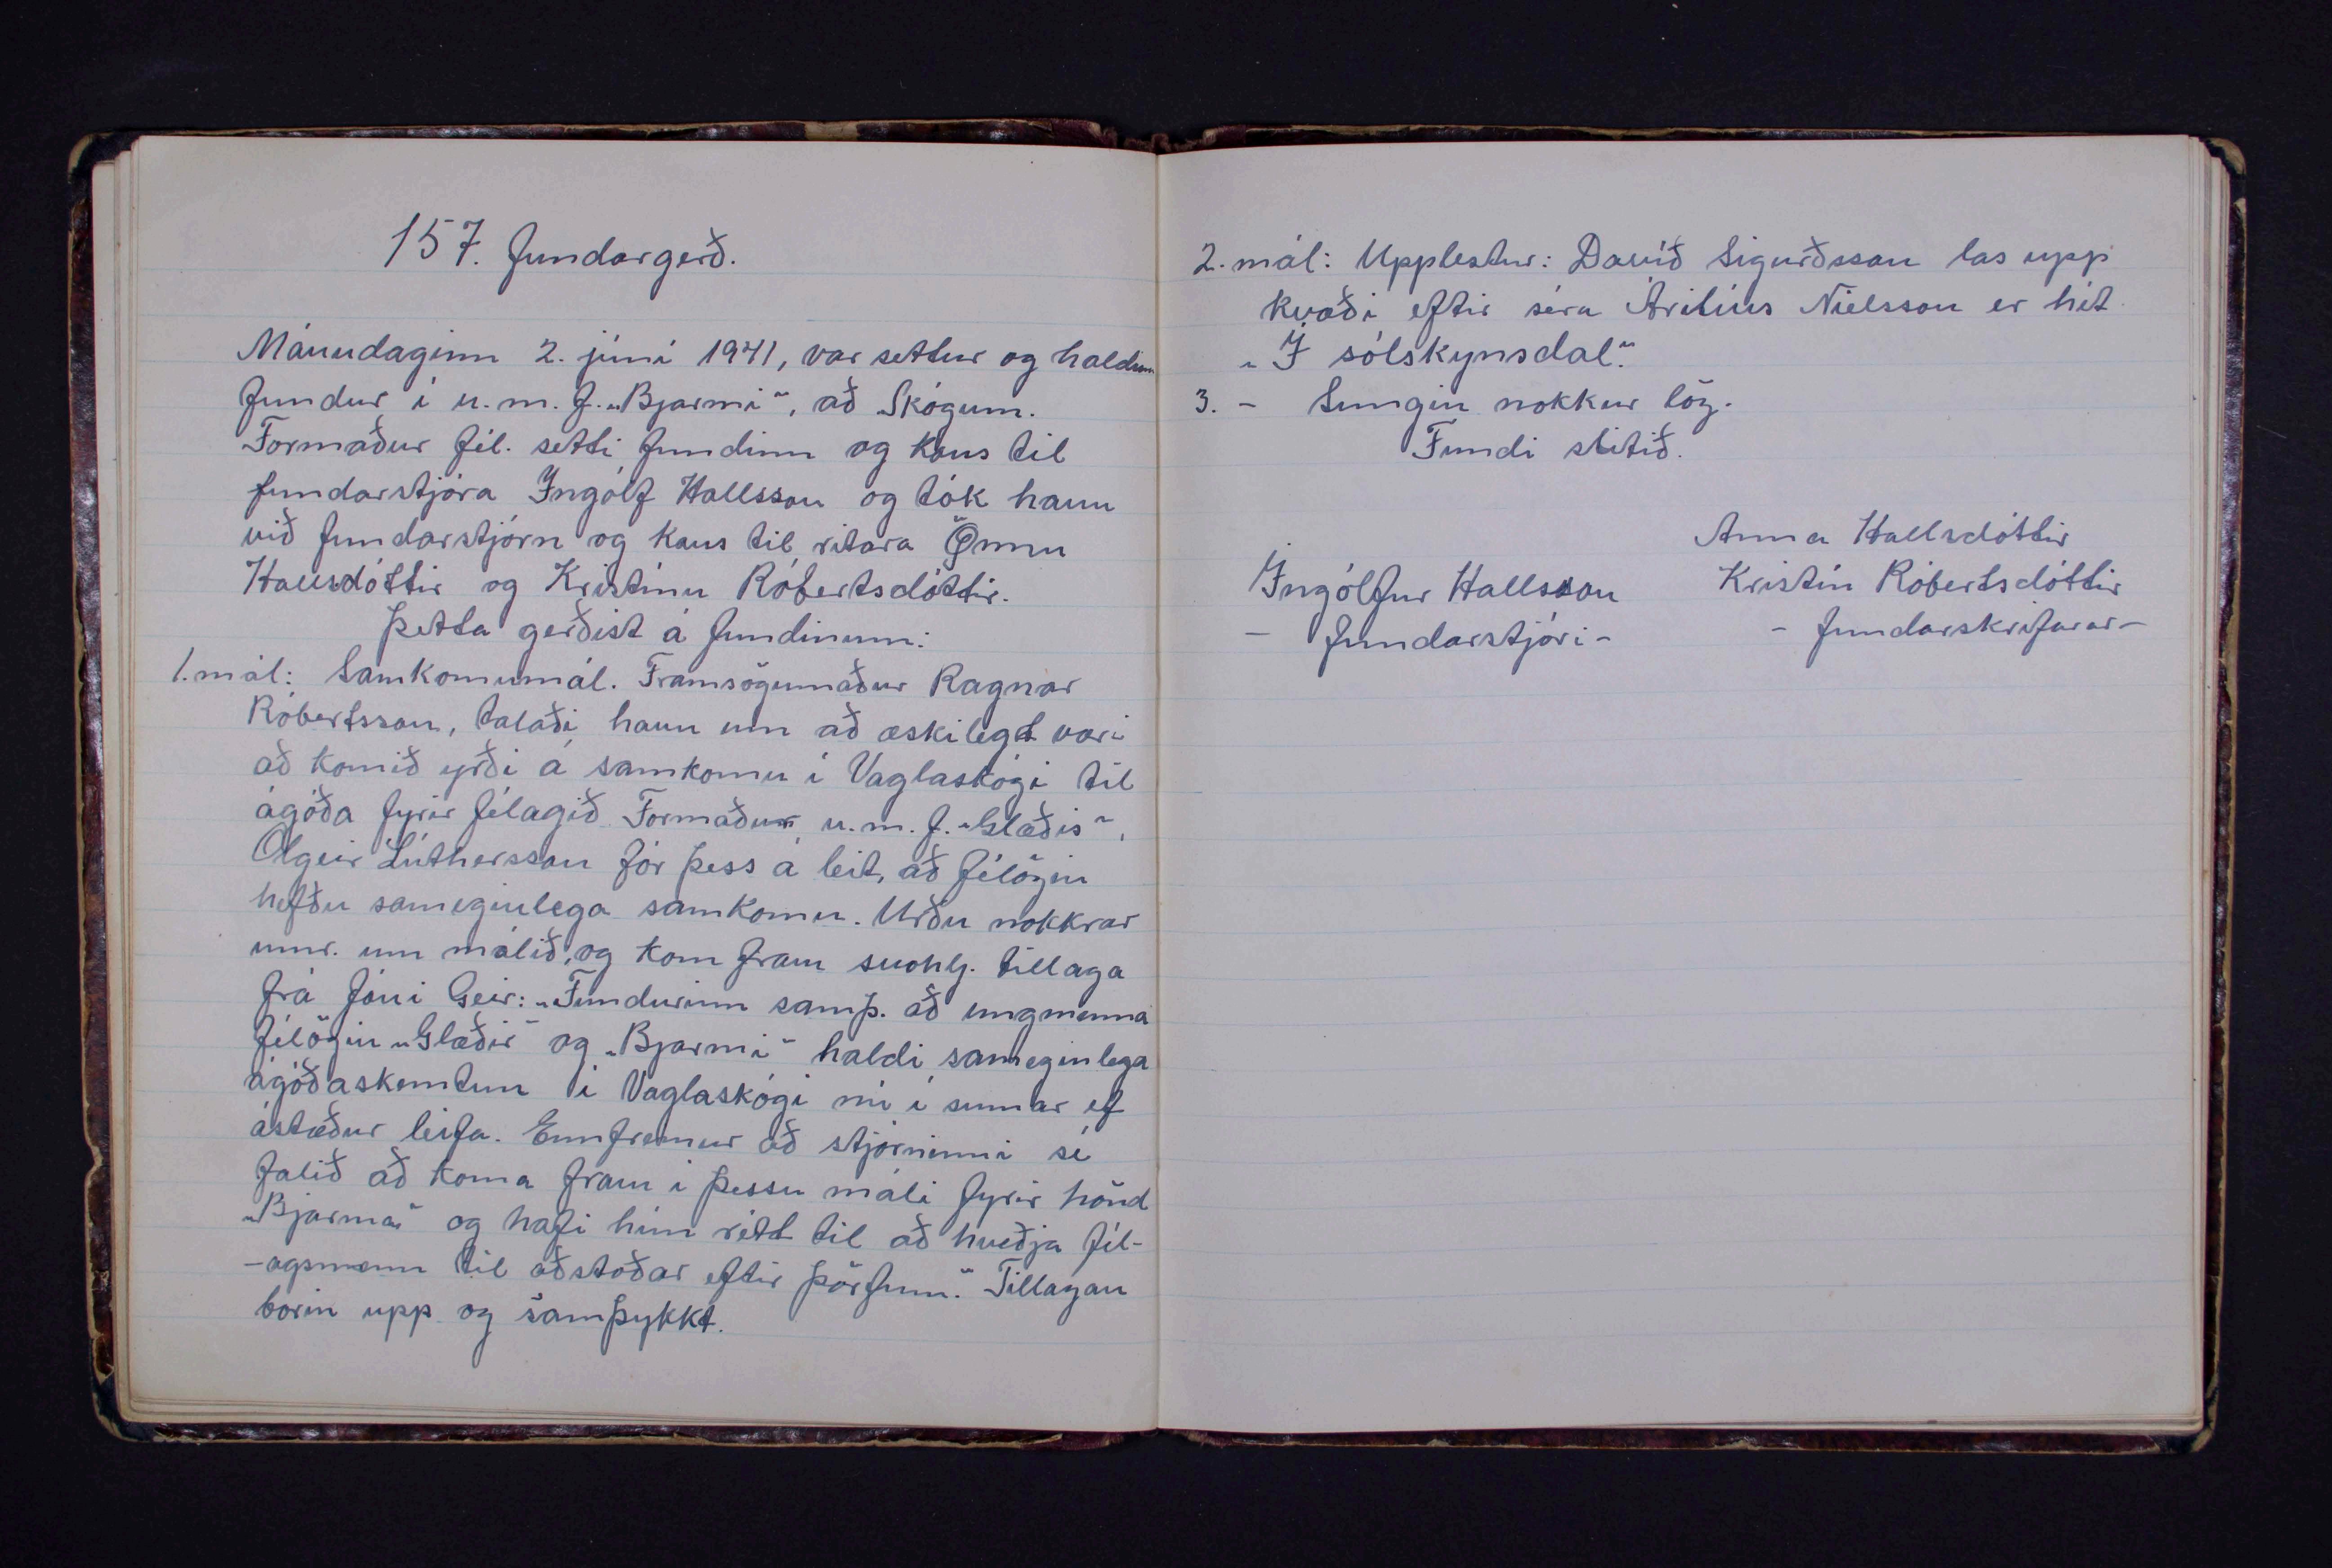 157. fundargerð.
Mánudaginn 2. júní 1941, var settur og haldinn
fundur í u.m.f. „Bjarmi“, að Skógum.
Formaður fél. setti fundinn og kaus til
fundarstjóra Ingólf Hallsson og tók hann
við fundarstjórn og kaus til ritara Önnu
Hallsdóttir og Kristínu Róbertsdóttir.
Þetta gerðist á fundinum:
1. mál: Samkomumál. Framsögumaður Ragnar
Róbertsson, talaði hann um að æskilegt væri
að komið yrði á samkomu í Vaglaskógi til
ágóða fyrir félagið. Formaður u.m.f. „Glæðis“,
Olgeir Lúthersson fór þess á leit, að félögin
hefðu sameginlega samkomu. Urðu nokkrar
umr. um málið, og kom fram svohlj. tillaga
frá Jóni Geir: „Fundurinn samþ. að ungmenna
félögin „Glæðir“ og „Bjarmi“ haldi sameginlega
ágóðaskemtun í Vaglaskógi nú í sumar ef
ástæður leifa. Ennfremur að stjórninni sé
falið að koma fram í þessu máli fyrir hönd
„Bjarma“ og hafi hún rétt til að hveðja fél-
-agsmenn til aðstoðar eftir þörfum.“ Tillagan
borin upp og samþykkt.
2. mál: Upplestur: Davíð Sigurðsson las upp
kvæði eftir séra Árilíus Níelsson er hét
„Í sólskynsdal“.
3. - Sungin nokkur lög.
Fundi slitið.
Anna Hallsdóttir
Ingólfur Hallsson Kristín Róbertsdóttir
- fundarstjóri - - fundarskrifarar -